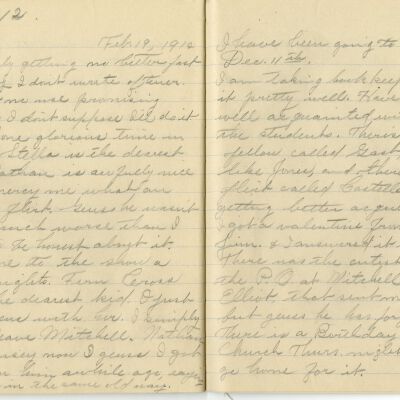 12
Feb 19, 1912
ly getting no better fast
if I don't write oftener.
me use promising
I don't suppose I'll do it
one glorious time in
Stella is the dearest
Nathan is awfully nice
mercy me what an
flirt. Guess he wasn't
much worse than I
be honest about it.
me to the show a
nights. Fern Cross
the dearest kid. I just
her. I simply
leave Mitchell. Nathan
now I guess I got
him awhile ago, says
in the same old way.
I have been going to
Dec. 11th.
I am taking book keep
it pretty well. Have
well acquainted wi
the students. There
fellow called East
like Jones, and there
flirt called
getting better acqu
I got a valentine from
Jim. & I answered it
There was the cutest
the P.O. at Mitchell
Elliot that sent me
but guess he has for
There is a Birthday
Church Thurs. night
go home for it.